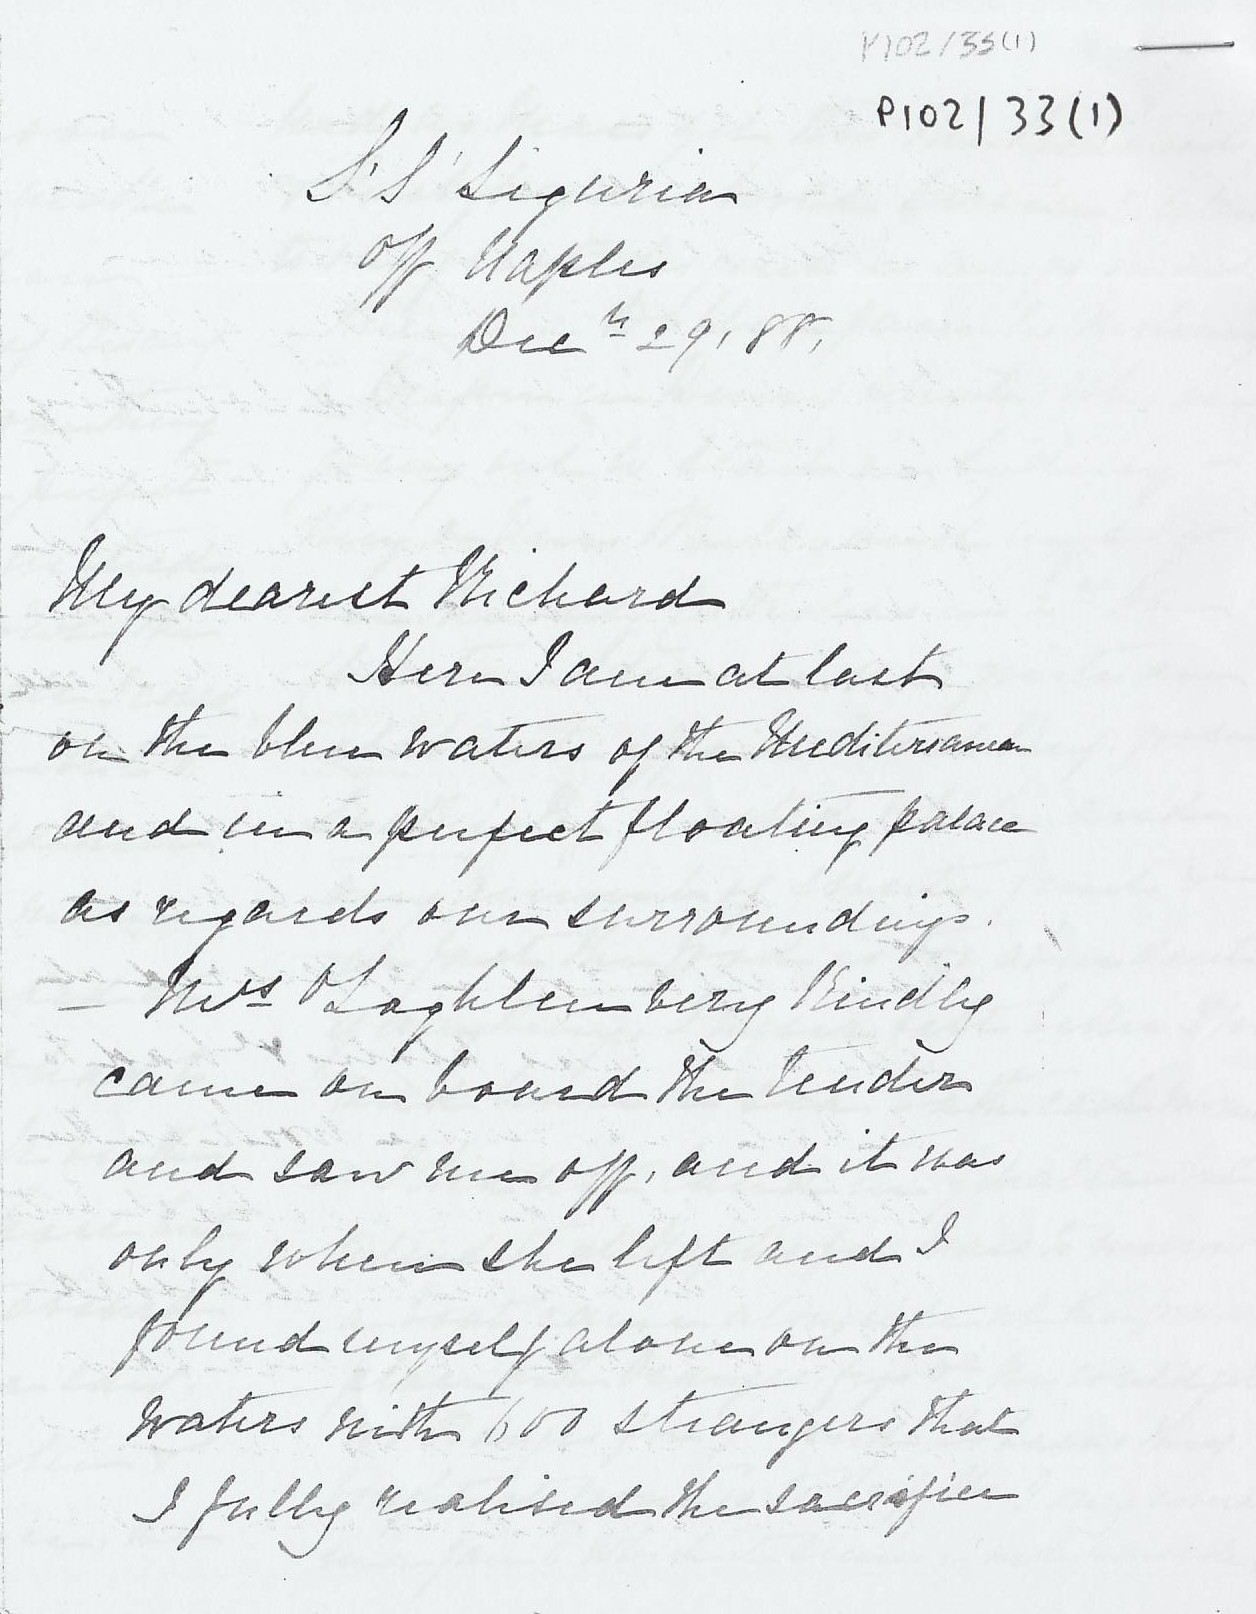 P102/33(1)
P102/33(1)
S.S. Liguria
off Naples
Decr 29, 88,
My dearest Richard
Here I am at last
on the blue waters of the Mediterranean
and in a perfect floating palace
as regards our surroundings.
— Mrs O'Loghlen very kindly
came on board the tender
and saw me off, and it was
only when she left and I
found myself alone on the
waters with 600 strangers that
I fully realised the sacrifice